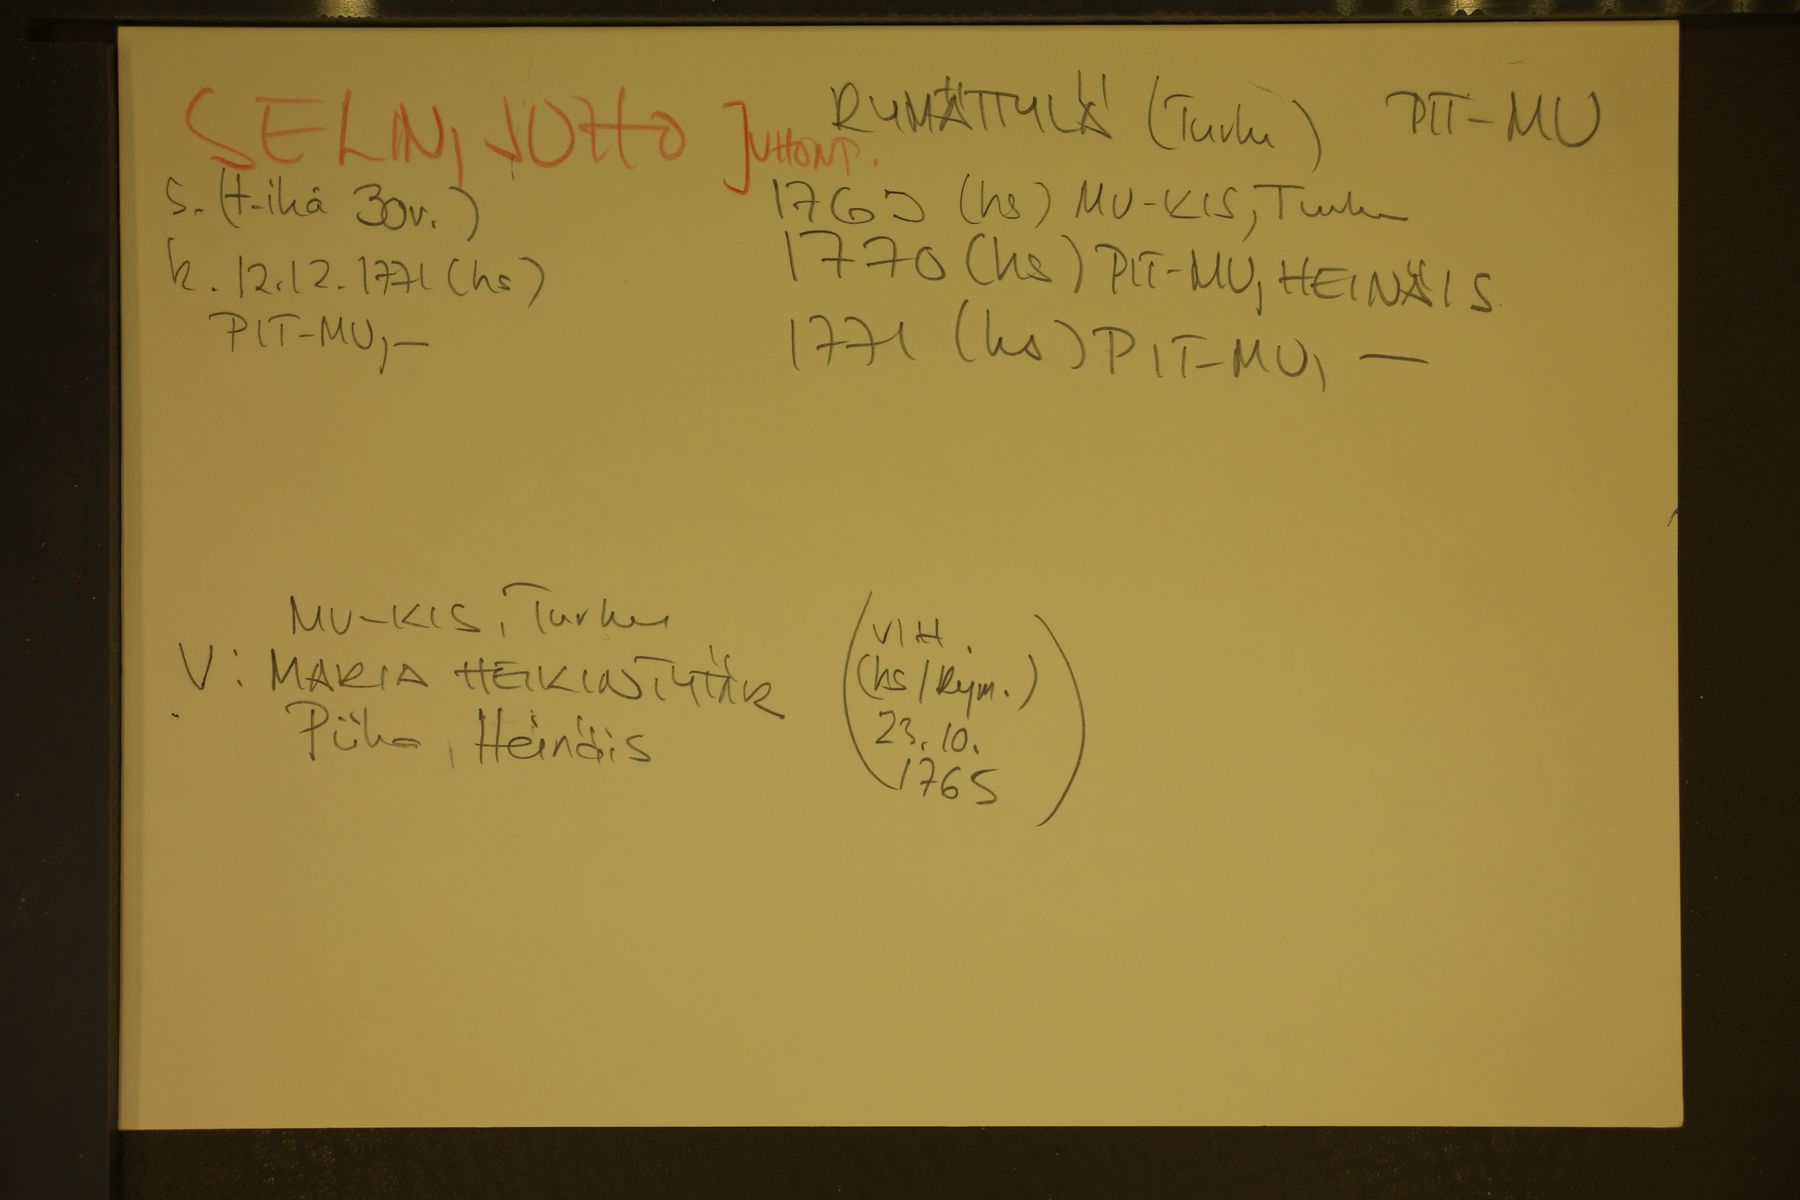 SELIN, JUHO JUHONP. RYMÄTTYLÄ (Turku) PIT-MU
S. (t-ikä 30v.)
k. 12.12.1771 (hs)
PIT-MU, —
1765 (hs) MU-KIS, Turku
1770 (hs) PIT-MU, HEINÄIS
1771 (hs) PIT-MU, —
MU-KIS, Turku
V: MARIA HEIKINTYTÄR
Piika, Heinäis
(VIH.
(hs/Rym.)
23.10.
1765)